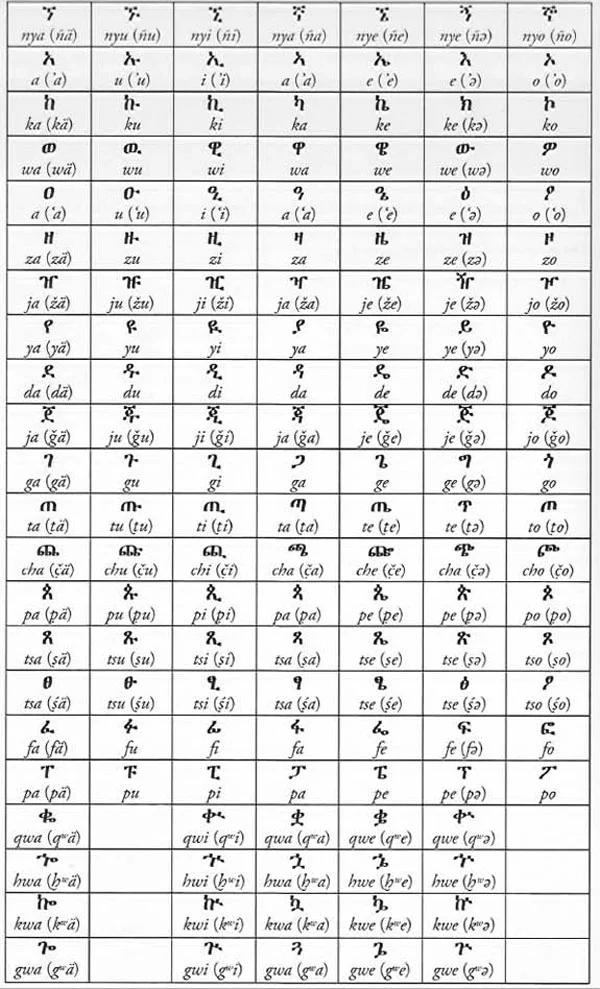 ኘ ኙ ኚ ኛ ኜ ኝ ኞ
nya (ñä) nyu (ñu) nyi (ñi) nya (ña) nye (ñe) nye (ñə) nyo (ño)
አ ኡ ኢ ኣ ኤ እ ኦ
a (ʾa) u (ʾu) i (ʾi) a (ʾa) e (ʾe) e (ʾə) o (ʾo)
ከ ኩ ኪ ካ ኬ ክ ኮ
ka (kä) ku ki ka ke ke (kə) ko
ወ ዉ ዊ ዋ ዌ ው ዎ
wa (wä) wu wi wa we we (wə) wo
ዐ ዑ ዒ ዓ ዔ ዕ ዖ
a (ʿa) u (ʿu) i (ʿi) a (ʿa) e (ʿe) e (ʿə) o (ʿo)
ዘ ዙ ዚ ዛ ዜ ዝ ዞ
za (zä) zu zi za ze ze (zə) zo
ዠ ዡ ዢ ዣ ዤ ዥ ዦ
ja (žä) ju (žu) ji (ži) ja (ža) je (že) je (žə) jo (žo)
የ ዩ ዪ ያ ዬ ይ ዮ
ya (yä) yu yi ya ye ye (yə) yo
ደ ዱ ዲ ዳ ዴ ድ ዶ
da (dä) du di da de de (də) do
ጀ ጁ ጂ ጃ ጄ ጅ ጆ
ja (ǧä) ju (ǧu) ji (ǧi) ja (ǧa) je (ǧe) je (ǧə) jo (ǧo)
ገ ጉ ጊ ጋ ጌ ግ ጎ
ga (gä) gu gi ga ge ge (gə) go
ጠ ጡ ጢ ጣ ጤ ጥ ጦ
ta (ṭä) tu (ṭu) ti (ṭi) ta (ṭa) te (ṭe) te (ṭə) to (ṭo)
ጨ ጩ ጪ ጫ ጬ ጭ ጮ
cha (č̣ä) chu (č̣u) chi (č̣i) cha (č̣a) che (č̣e) cha (č̣ə) cho (č̣o)
ጰ ጱ ጲ ጳ ጴ ጵ ጶ
pa (p̣ä) pu (p̣u) pi (p̣i) pa (p̣a) pe (p̣e) pe (p̣ə) po (p̣o)
ጸ ጹ ጺ ጻ ጼ ጽ ጾ
tsa (ṣä) tsu (ṣu) tsi (ṣi) tsa (ṣa) tse (ṣe) tse (ṣə) tso (ṣo)
ፀ ፁ ፂ ፃ ፄ ፅ ፆ
tsa (ṣ́ä) tsu (ṣ́u) tsi (ṣ́i) tsa (ṣ́a) tse (ṣ́e) tse (ṣ́ə) tso (ṣ́o)
ፈ ፉ ፊ ፋ ፌ ፍ ፎ
fa (fä) fu fi fa fe fe (fə) fo
ፐ ፑ ፒ ፓ ፔ ፕ ፖ
pa (pä) pu pi pa pe pe (pə) po
ቈ ቊ ቋ ቌ ቍ
qwa (qʷä) qwi (qʷi) qwa (qʷa) qwe (qʷe) qwe (qʷə)
ኈ ኊ ኋ ኌ ኍ
hwa (ḫʷä) hwi (ḫʷi) hwa (ḫʷa) hwe (ḫʷe) hwe (ḫʷə)
ኰ ኲ ኳ ኴ ኵ
kwa (kʷä) kwi (kʷi) kwa (kʷa) kwe (kʷe) kwe (kʷə)
ጐ ጒ ጓ ጔ ጕ
gwa (gʷä) gwi (gʷi) gwa (gʷa) gwe (gʷe) gwe (gʷə)